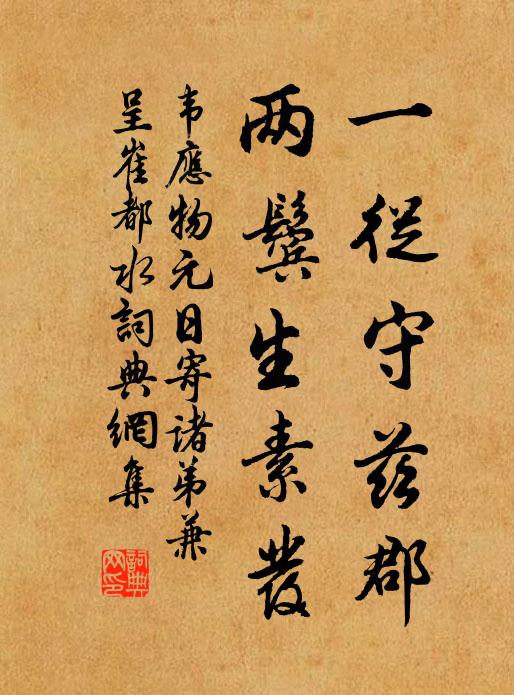 一從守兹郡
两鬓生素發
韦應物元日寄诸弟兼
呈崔都水詞典網集
詞典網印